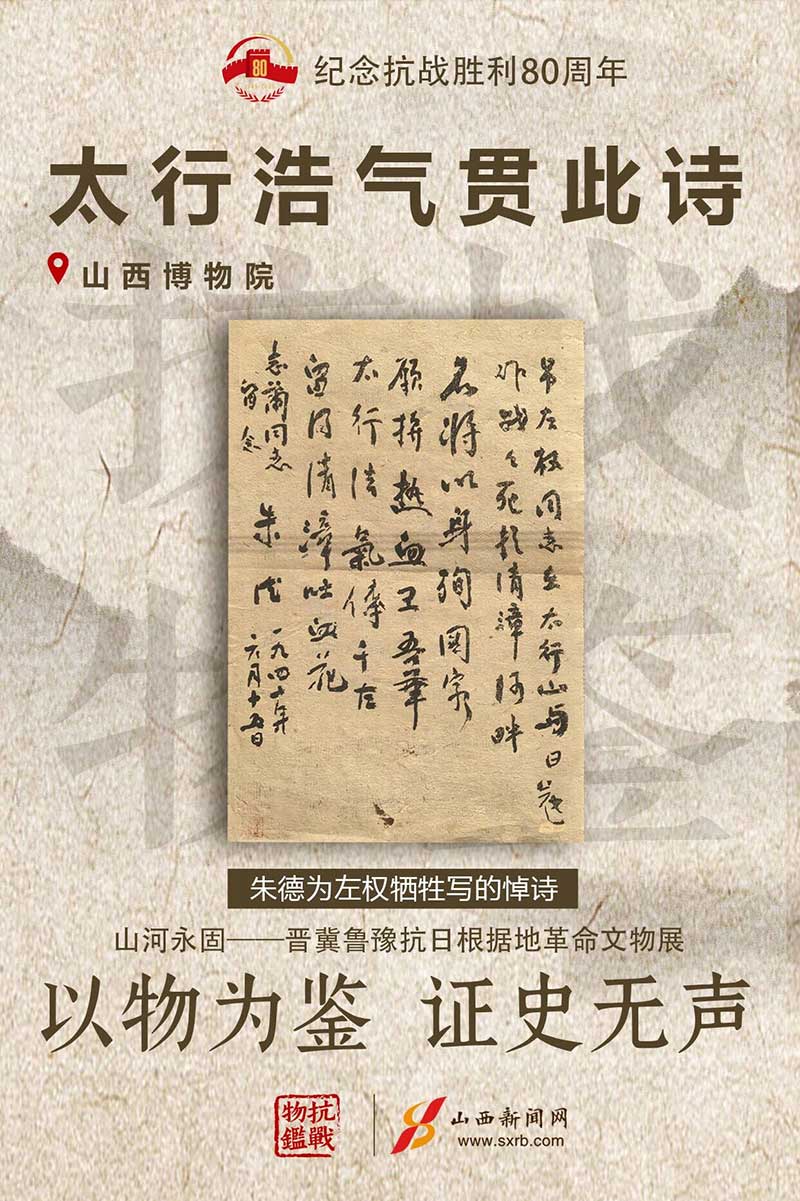 80
纪念抗战胜利80周年
太行浩气贯此诗
山西博物院
抗战
物鉴
吊左权同志在太行山与日寇
作战々死於清漳河畔
名将以身殉国家
願拚热血卫吾華
太行浩氣傳千古
留得清漳吐血花
志蘭同志
留念
朱德
六月十五日
朱德为左权牺牲写的悼诗
山河永固——晋冀鲁豫抗日根据地革命文物展
以物为鉴 证史无声
抗戰
物鑑
山西新闻网
www.sxrb.com